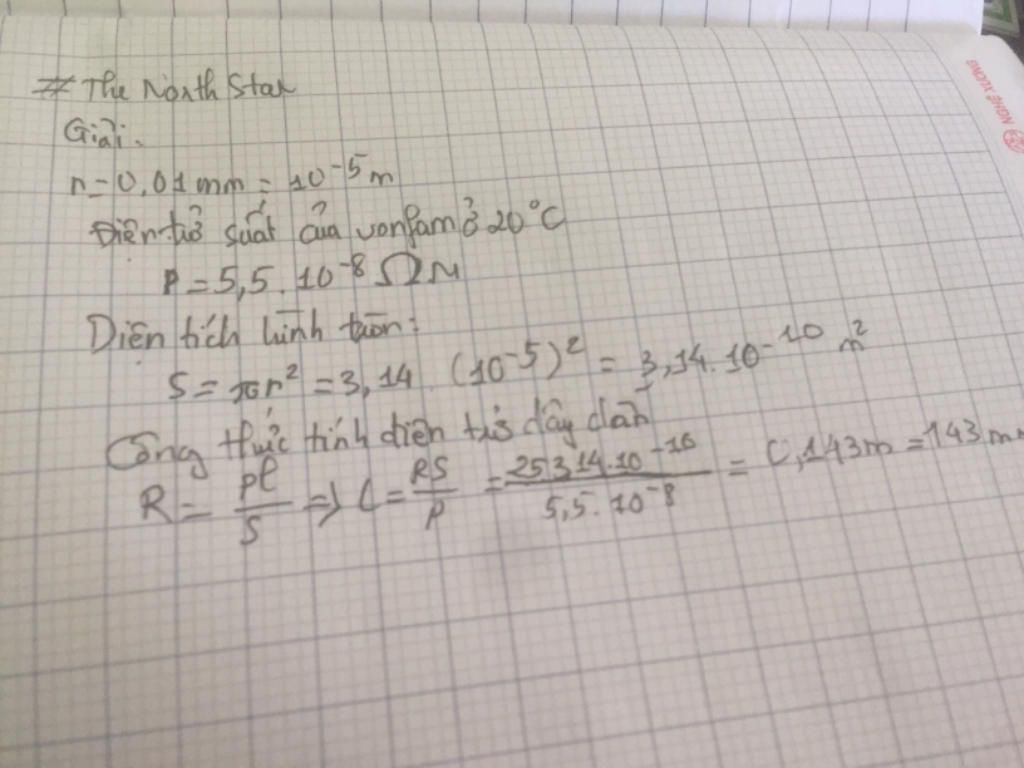 # The North Star
Giải.
r = 0,01 mm = 10⁻⁵ m
Điện trở suất của vonfam ở 20°C
ρ = 5,5 . 10⁻⁸ Ω m
Diện tích hình tròn:
S = πr² = 3,14 . (10⁻⁵)² = 3,14 . 10⁻¹⁰ m²
Công thức tính điện trở dây dẫn
R = ρl/S ⇒ l = RS/ρ = 25.3,14.10⁻¹⁰/5,5.10⁻⁸ = 0,143m = 143 mm
NGHE XUONG